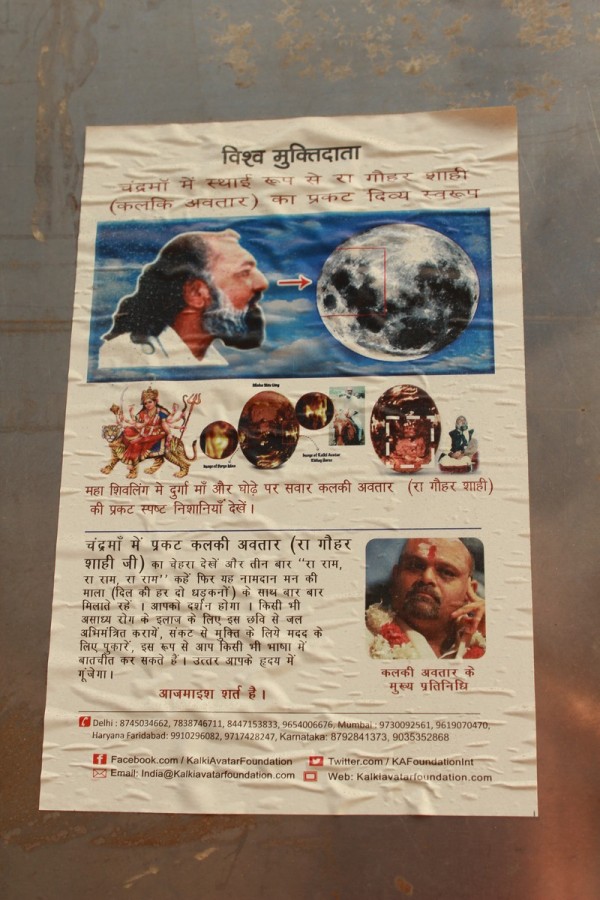 विश्व मुक्तिदाता
चंद्रमाँ में स्थाई रूप से रा गौहर शाही
(कलकि अवतार) का प्रकट दिव्य स्वरूप
महा शिवलिंग में दुर्गा माँ और घोड़े पर सवार कलकी अवतार (रा गौहर शाही)
की प्रकट स्पष्ट निशानियाँ देखें।
चंद्रमाँ में प्रकट कलकी अवतार (रा गौहर
शाही जी) का चेहरा देखें और तीन बार "रा राम,
रा राम, रा राम" कहें फिर यह नामदान मन की
माला (दिल की हर दो धड़कनों) के साथ बार बार
मिलाते रहें । आपको दर्शन होगा । किसी भी
असाध्य रोग के इलाज के लिए इस छवि से जल
अभिमंत्रित करायें, संकट से मुक्ति के लिये मदद के
लिए पुकारें, इस रूप से आप किसी भी भाषा में
बातचीत कर सकते हैं । उत्तर आपके हृदय में
गूंजेगा।
आजमाइश शर्त है।
कलकी अवतार के
मुख्य प्रतिनिधि
Delhi : 8745034662, 7838746711, 8447153833, 9654006676, Mumbai : 9730092561, 9619070470,
Haryana Faridabad: 9910296082, 9717428247, Karnataka: 8792841373, 9035352868
Facebook.com / KalkiAvatarFoundation
Twitter.com / KAFoundationInt
Email: India@Kalkiavatarfoundation.com
Web: Kalkiavatarfoundation.com